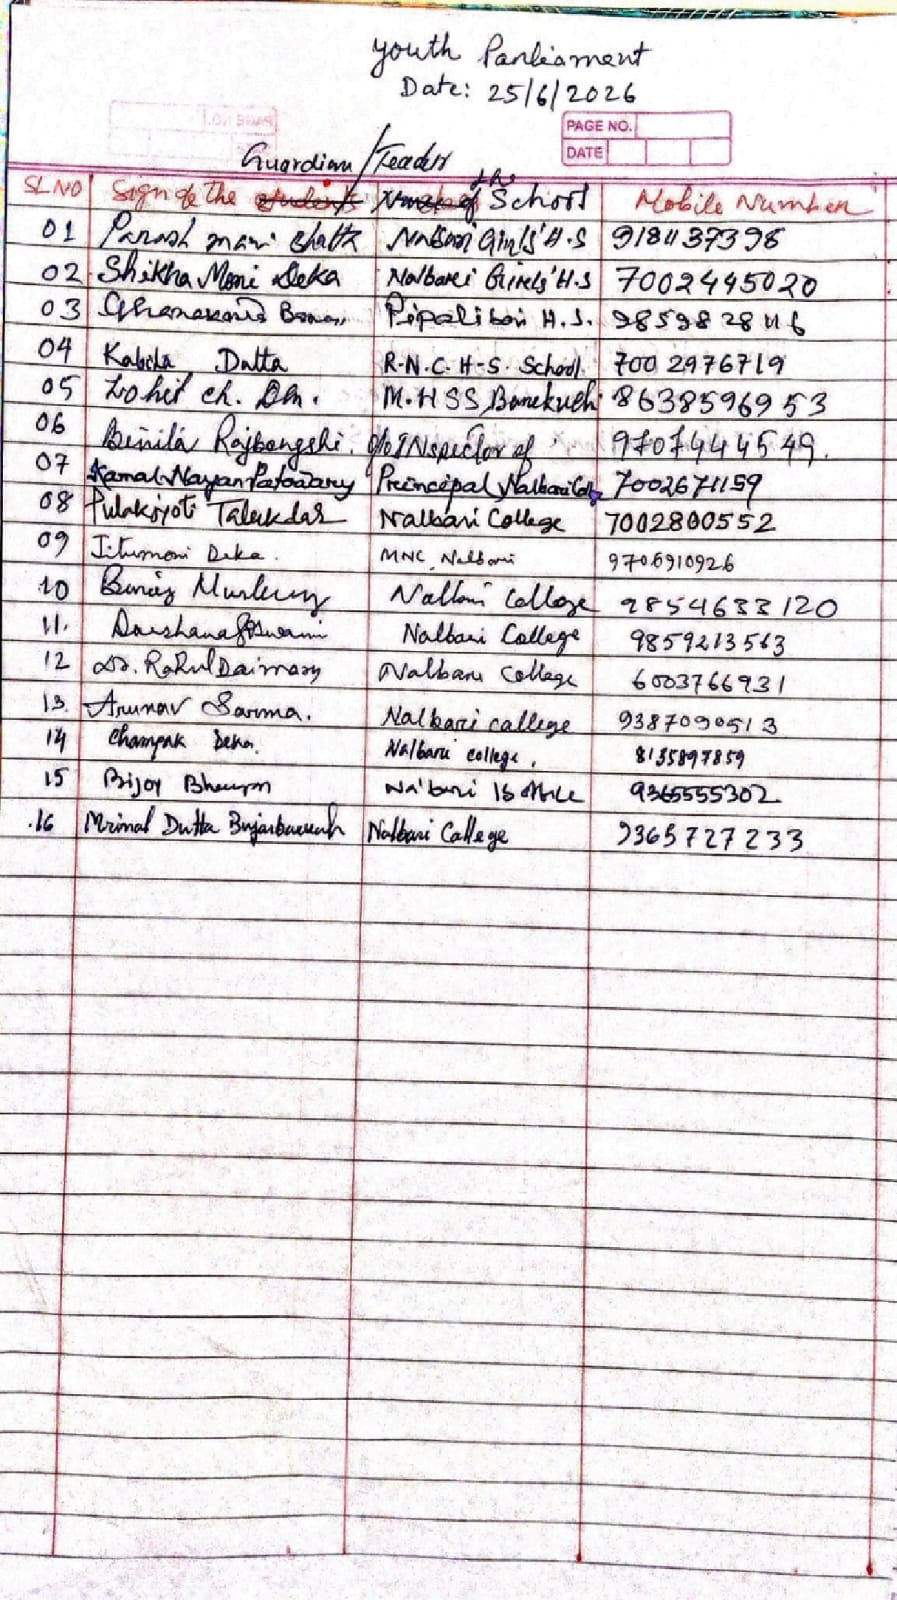 Youth Parliament
Date: 25/6/2026
PAGE NO.
DATE
Guardian/Teacher
SL NO Sign of the students Name of the School Mobile Number
01 Parash mani Nalbari Girls' H.S 9184137398
02 Shikha Moni Deka Nalbari Girls' H.S 7002445020
03 Pipalibari H.S.
04 Kabita Dutta R.N.C.H-S. School 700 2976719
05 Lohit ch. M.HSS Banekuchi 8638596953
06 Binita Rajbongshi. o/o Inspector of 9707444549.
07 Kamal Nayan Patowary Principal Nalbari 7002671159
08 Pulakjyoti Talukdar Nalbari College 7002800552
09 Jitumoni Deka. MNC, Nalbari 9706910926
10 Nalbari College 9854633120
11. Darshana Goswami Nalbari College 9859213563
12 Dr. Rahul Daimary Nalbari College 6003766931
13. Arunav Sarma. Nalbari college 9387090513
14 Champak Deka. Nalbari college. 8135897859
15 Bijoy 9365555302
16 Mrinal Dutta Bujarbaruah Nalbari College 9365727233